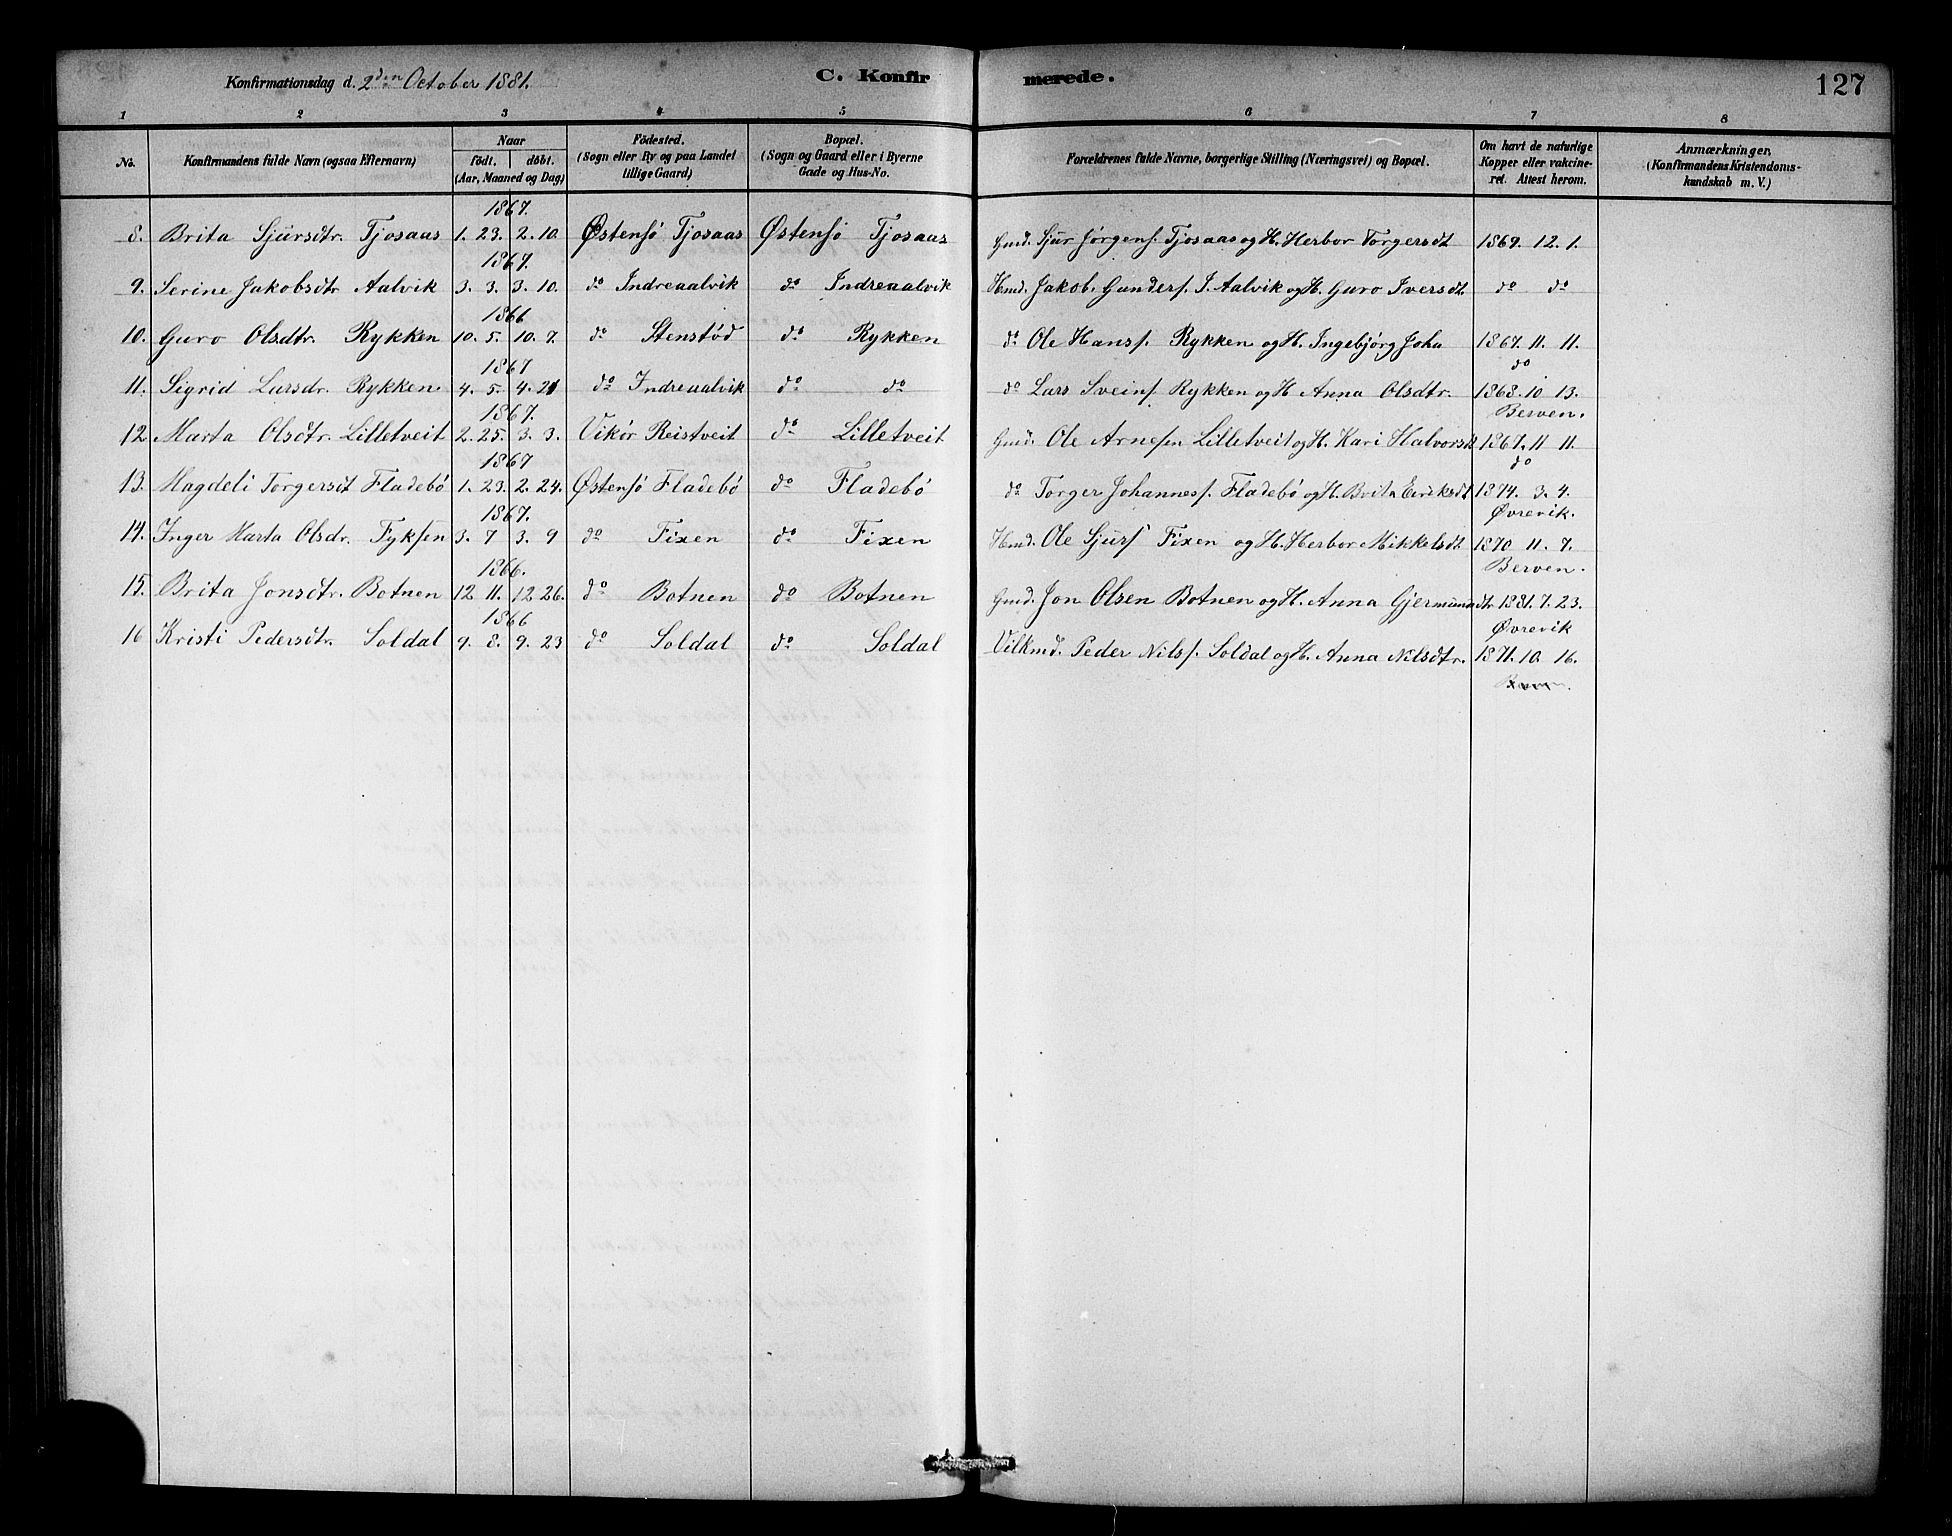 Konfirmationsdag d. 2den October 1881. C. Konfirmerede. 127
1 2 3 4 5 6 7 8
No. Konfirmandens fulde Navn (ogsaa Efternavn) Naar födt. döbt. (Aar, Maaned og Dag) Födested. (Sogn eller By og paa Landet tillige Gaard) Bopæl. (Sogn og Gaard eller i Byerne Gade og Hus-No. Forældrenes fulde Navne, borgerlige Stilling (Næringsvei) og Bopæl. Om havt de naturlige Kopper eller vakcineret. Attest herom. Anmærkninger, (Konfirmandens Kristendomskundskab m. V.)
1867.
8. Brita Sjursdtr. Tjosaas 1. 23. 2. 10. Østensö Tjosaas Østensö Tjosaas Gmd. Sjur Jörgens. Tjosaas og H. Herbor Torgersdt 1869. 12. 1.
1867.
9. Serine Jakobsdtr Aalvik 3. 3. 3. 10. do Indreaalvik do Indreaalvik Hmd. Jakob. Gunders. I. Aalvik og H. Guro Iversdt. do do
1866
10. Guro Olsdtr. Rykken 10. 5. 10. 7. do Stenstød do Rykken do Ole Hans. Rykken og H. Ingebjörg Joha 1867. 11. 11.
1867 do
11. Sigrid Larsdr. Rykken 4. 5. 4. 21 do Indreaalvik do do do Lars Sveins. Rykken og H. Anna Olsdtr. 1868. 10. 13.
1867. Berven.
12 Marta Olsdtr. Lilletveit 2. 25. 3. 3. Vikör Reistveit do Lilletveit Gmd Ole Arnesen Lilletveit og H. Kari Halvorsdt 1867. 11 11.
1867 do
13. Magdeli Torgersdt Fladebö 1. 23. 2. 24. Østensö Fladebö do Fladebö do Torger Johanness. Fladebö og H. Brita Eriksdt 1874. 3. 4.
1867. Øvrevik.
14. Inger Marta Olsdr. Fyksen 3. 7 3. 9 do Fixen do Fixen Hmd. Ole Sjurs Fixen og H. Herbor Mikkelsdt. 1870 11. 7.
1866. Berven.
15. Brita Jonsdtr. Botnen 12 11. 12 26. do Botnen do Botnen Gmd. Jon Olsen Botnen og H. Anna Gjermundtr 1881. 7. 23.
1866 Øvrevik
16 Kristi Pedersdtr. Soldal 9. 8. 9. 23 do Soldal do Soldal Vilkmd. Peder Nils. Soldal og H. Anna Nilsdtr. 1871. 10. 16.